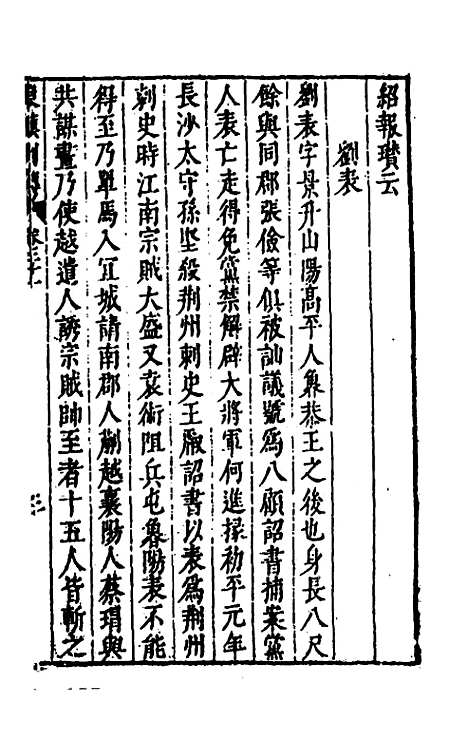 紹報瓚云
劉表
劉表字景升山陽高平人魯恭王之後也身長八尺
餘與同郡張儉等俱被訕議號爲八顧詔書捕案黨
人表亡走得免黨禁解辟大將軍何進掾初平元年
長沙太守孫堅殺荆州刺史王叡詔書以表爲荆州
刺史時江南宗賊大盛又袁術阻兵屯魯陽表不能
得至乃單馬入宜城請南郡人蒯越襄陽人蔡瑁與
共謀畫乃使越遣人誘宗賊帥至者十五人皆斬之
卷三十一